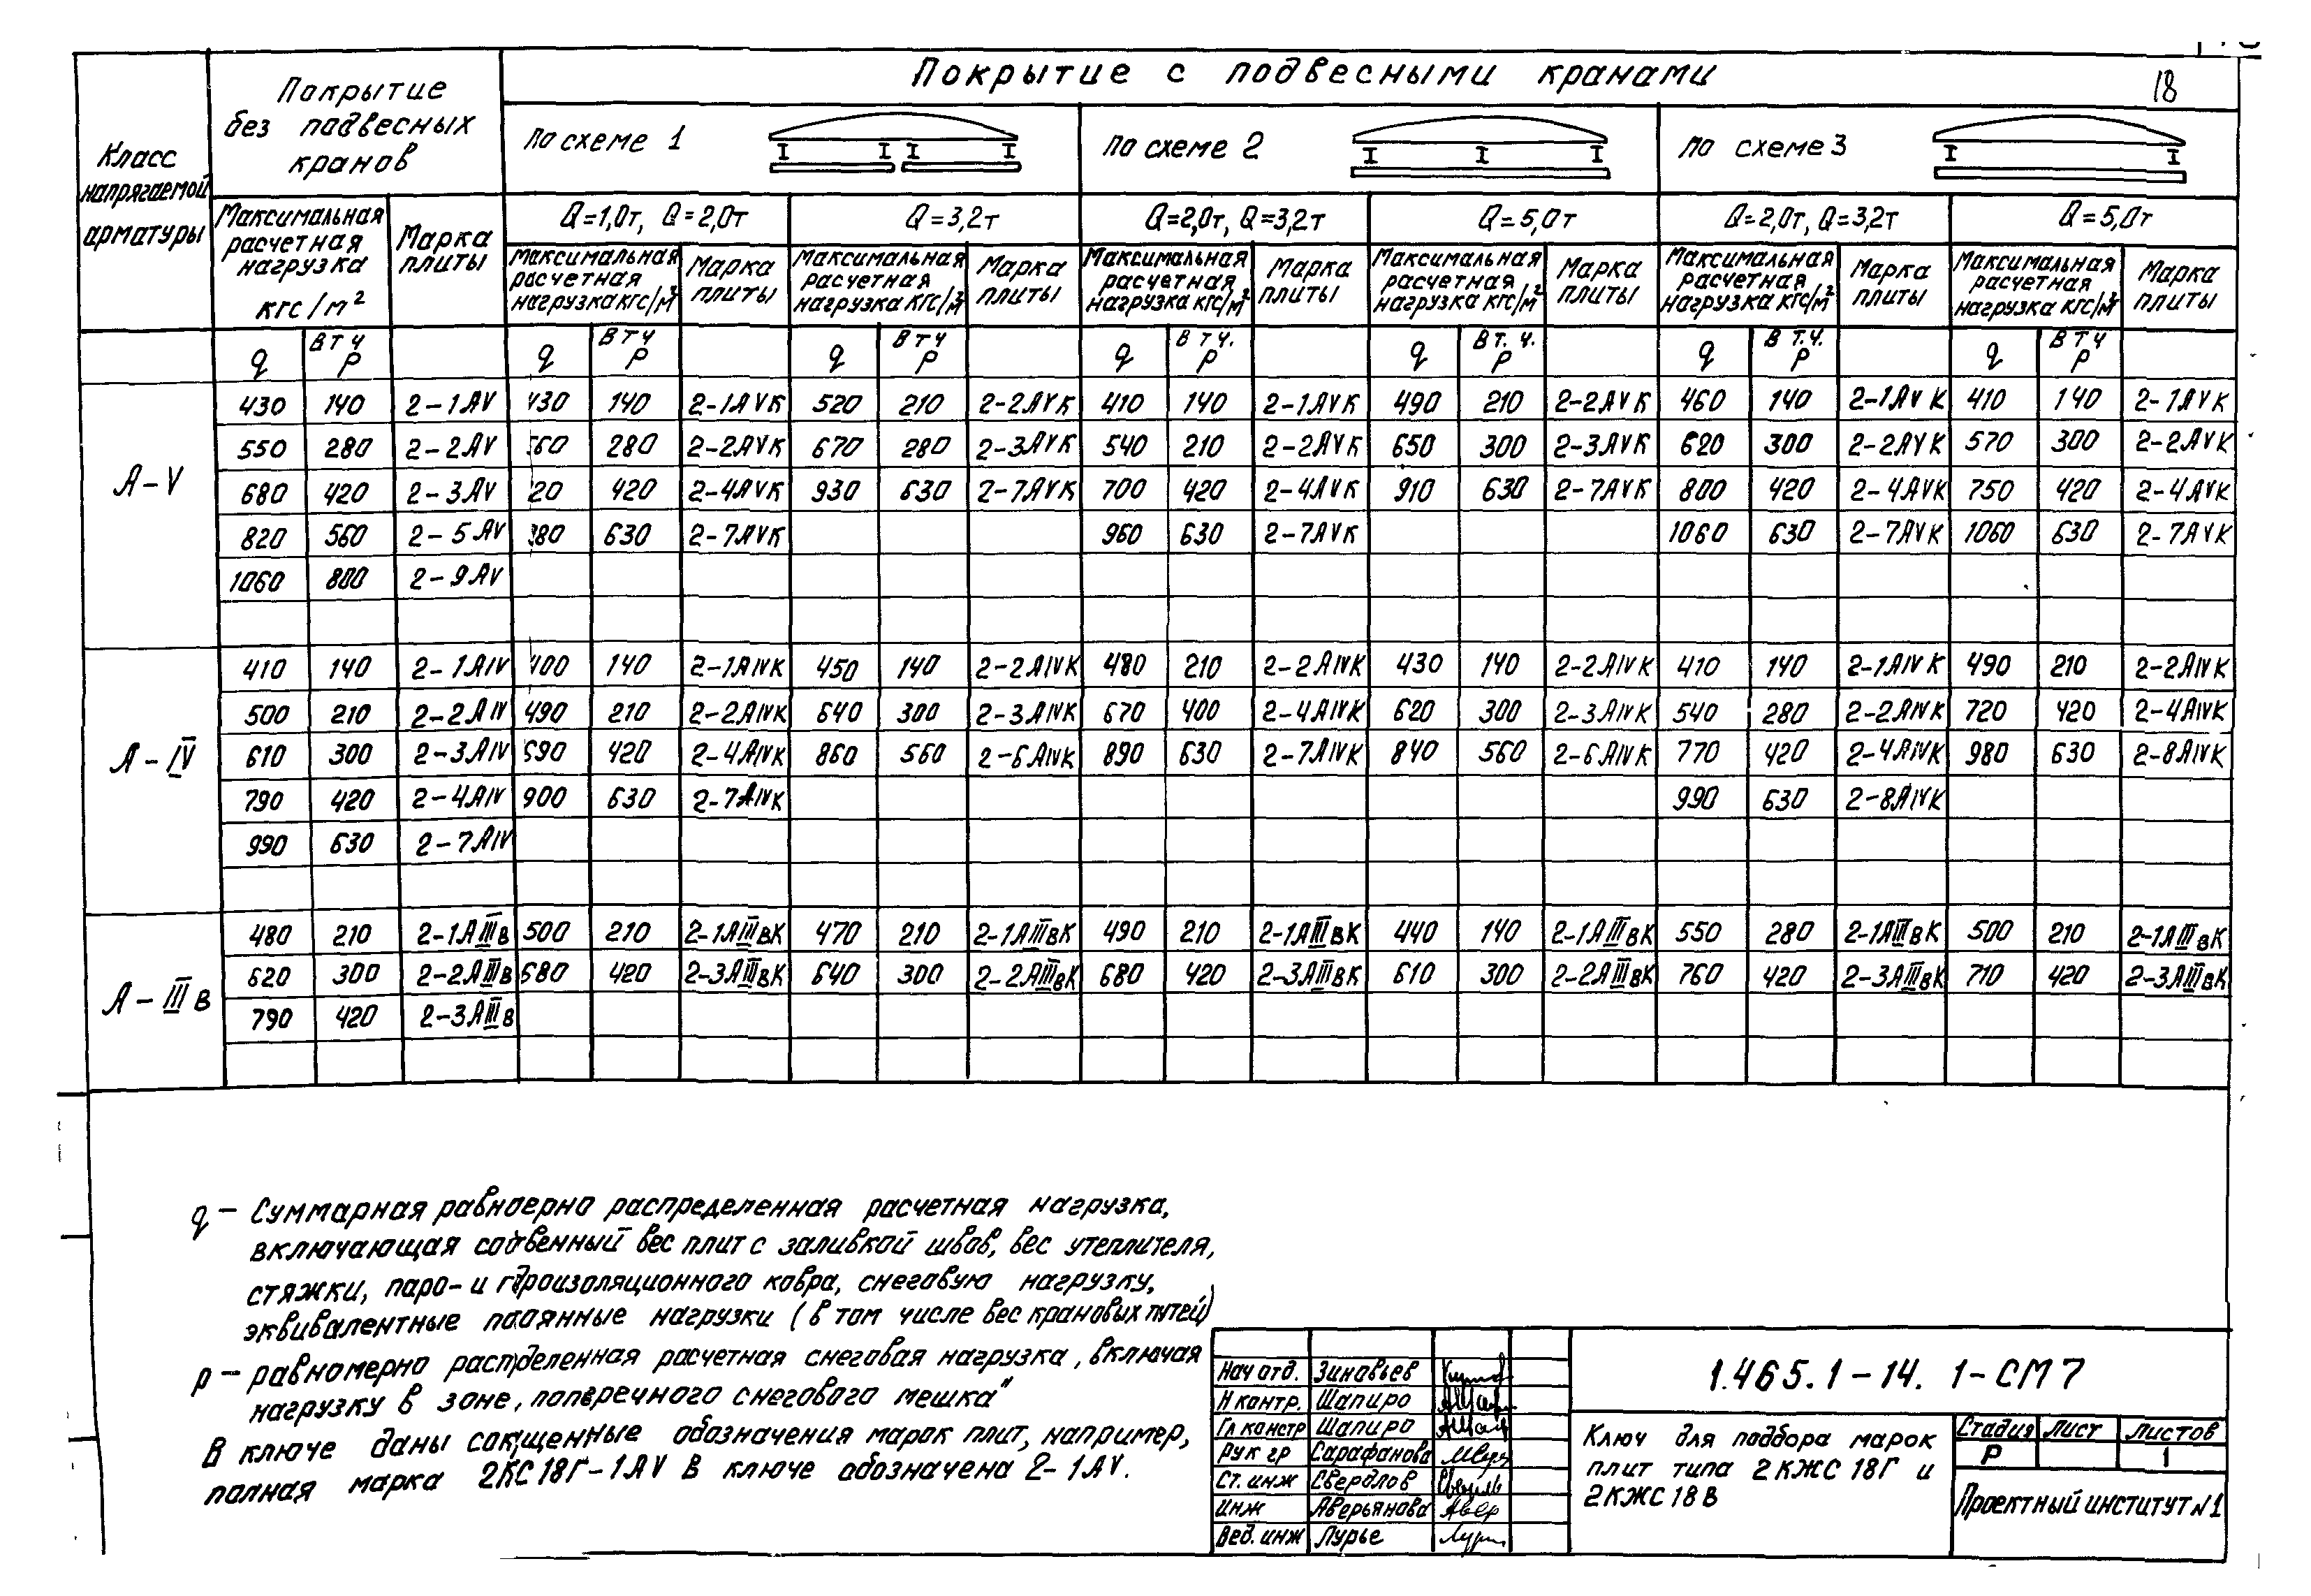 18
Покрытие с подвесными кранами
Покрытие
без подвесных
кранов
Класс
напрягаемой
арматуры
по схеме 1
по схеме 2
по схеме 3
Q=1,0т, Q=2,0т Q=3,2т Q=2,0т, Q=3,2т Q=5,0т Q=2,0т, Q=3,2т Q=5,0т
Максимальная
расчетная
нагрузка
кгс/м²
Марка
плиты
Максимальная
расчетная
нагрузка кгс/м²
Марка
плиты
Максимальная
расчетная
нагрузка кгс/м²
Марка
плиты
Максимальная
расчетная
нагрузка кгс/м²
Марка
плиты
Максимальная
расчетная
нагрузка кгс/м²
Марка
плиты
Максимальная
расчетная
нагрузка кгс/м²
Марка
плиты
Максимальная
расчетная
нагрузка кгс/м²
Марка
плиты
q в т ч р q в т ч р q в т ч р q в т ч. р q в т. ч. р q в т. ч. р q в т ч р
А-V
430 140 2-1АV 430 140 2-1АVК 520 210 2-2АVК 410 140 2-1АVК 490 210 2-2АVК 460 140 2-1АVК 410 140 2-1АVК
550 280 2-2АV 60 280 2-2АVК 670 280 2-3АVК 540 210 2-2АVК 650 300 2-3АVК 620 300 2-2АVК 570 300 2-2АVК
680 420 2-3АV 20 420 2-4АVК 930 630 2-7АVК 700 420 2-4АVК 910 630 2-7АVК 800 420 2-4АVК 750 420 2-4АVК
820 560 2-5АV 80 630 2-7АVК 960 630 2-7АVК 1060 630 2-7АVК 1060 630 2-7АVК
1060 800 2-9АV
А-IV
410 140 2-1АIV 400 140 2-1АIVК 450 140 2-2АIVК 480 210 2-2АIVК 430 140 2-2АIVК 410 140 2-1АIVК 490 210 2-2АIVК
500 210 2-2АIV 490 210 2-2АIVК 640 300 2-3АIVК 670 400 2-4АIVК 620 300 2-3АIVК 540 280 2-2АIVК 720 420 2-4АIVК
610 300 2-3АIV 690 420 2-4АIVК 860 560 2-6АIVК 890 630 2-7АIVК 840 560 2-6АIVК 770 420 2-4АIVК 980 630 2-8АIVК
790 420 2-4АIV 900 630 2-7АIVК 990 630 2-8АIVК
990 630 2-7АIV
А-IIIв
480 210 2-1АIIIв 500 210 2-1АIIIвК 470 210 2-1АIIIвК 490 210 2-1АIIIвК 440 140 2-1АIIIвК 550 280 2-1АIIIвК 500 210 2-1АIIIвК
620 300 2-2АIIIв 680 420 2-3АIIIвК 640 300 2-2АIIIвК 680 420 2-3АIIIвК 610 300 2-2АIIIвК 760 420 2-3АIIIвК 710 420 2-3АIIIвК
790 420 2-3АIIIв
q – Суммарная равноерно распределенная расчетная нагрузка,
включающая содвенный вес плит с заливкой швов, вес утеплителя,
стяжки, паро- и гдроизоляционного ковра, снеговую нагрузку,
эквивалентные паоянные нагрузки (в том числе вес крановых путей)
р – равномерно распделенная расчетная снеговая нагрузка, включая
нагрузку в зоне, поперечного снегового мешка"
В ключе даны сокщенные обозначения марок плит, например,
полная марка 2КС18Г-1АV в ключе обозначена 2-1АV.
Нач отд. Зиновьев
Н контр. Шапиро
Гл констр Шапиро
Рук гр Сарафанова
Ст. инж Свердлов
Инж Аверьянова
Вед. инж Лурье
1.465.1-14. 1-СМ7
Ключ для подбора марок
плит типа 2КЖС18Г и
2КЖС18В
Стадия Лист Листов
Р 1
Проектный институт №1